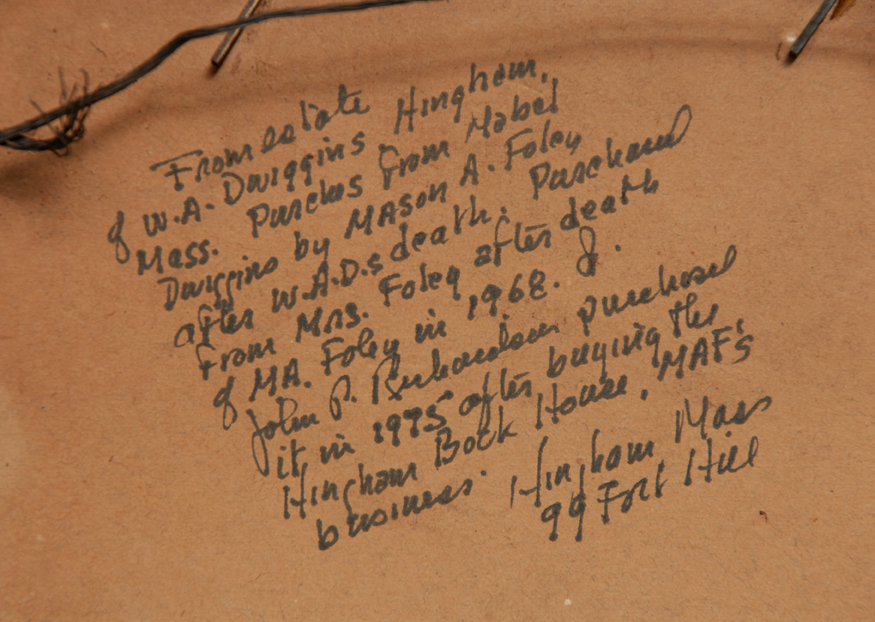 From estate
of W.A. Dwiggins. Hingham,
Mass. Purchas from Mabel
Dwiggins by MASON A. Foley
after W.A.D.s death. Purchased
from Mrs. Foley after death
of MA. Foley in 1968. J.
John P. Richardson purchased
it in 1975 after buying the
Hingham Book House, MAF's
business. Hingham Mass
99 Fort Hill